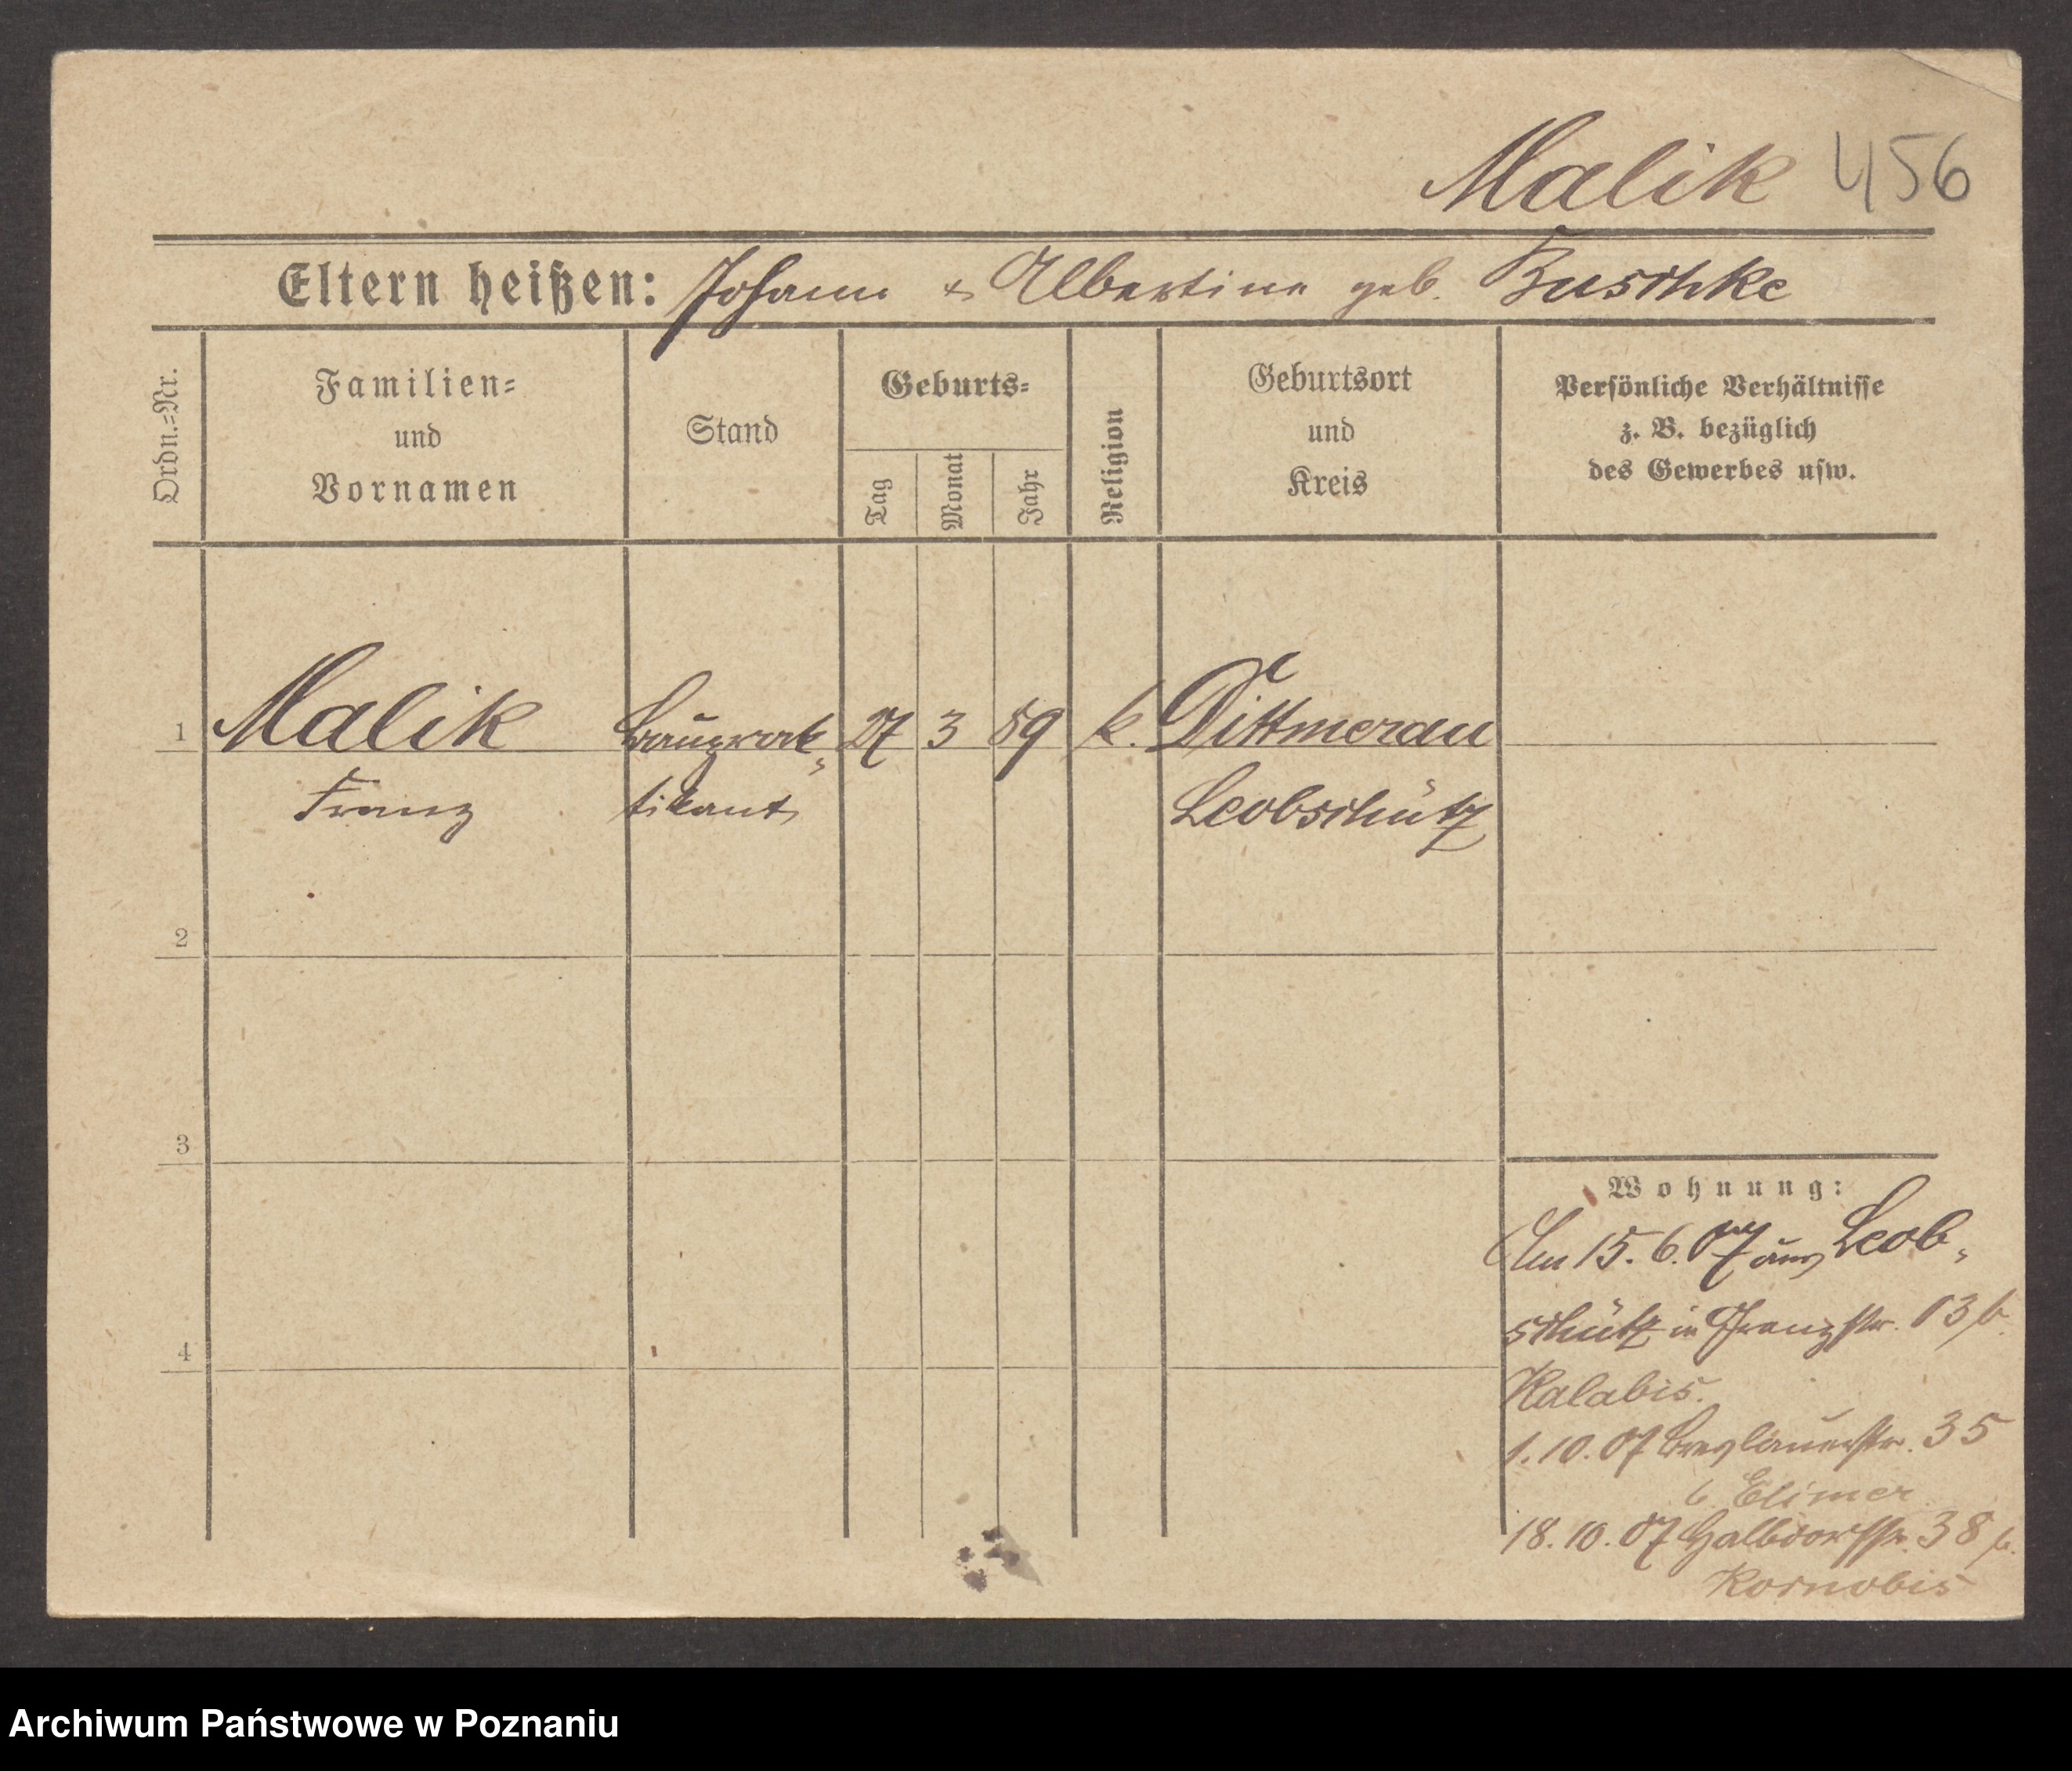 Malik 456
Eltern heißen: Johann & Albertine geb. Buschke
Ordn.=Nr.
Familien=
und
Vornamen
Stand
Geburts=
Tag
Monat
Jahr
Religion
Geburtsort
und
Kreis
Persönliche Verhältnisse
z. B. bezüglich
des Gewerbes usw.
1 Malik Bauprak- 27 3 89 k. Dittmerau
Franz tikant Leobschütz
2
3
4
Wohnung:
Am 15.6.07 aus Leob-
schütz in Franzstr. 13 b.
Kalabis.
1.10.07 Breslauerstr. 35
b. Elimer
18.10.07 Halbdorfstr. 38 b.
Kornobis
Archiwum Państwowe w Poznaniu